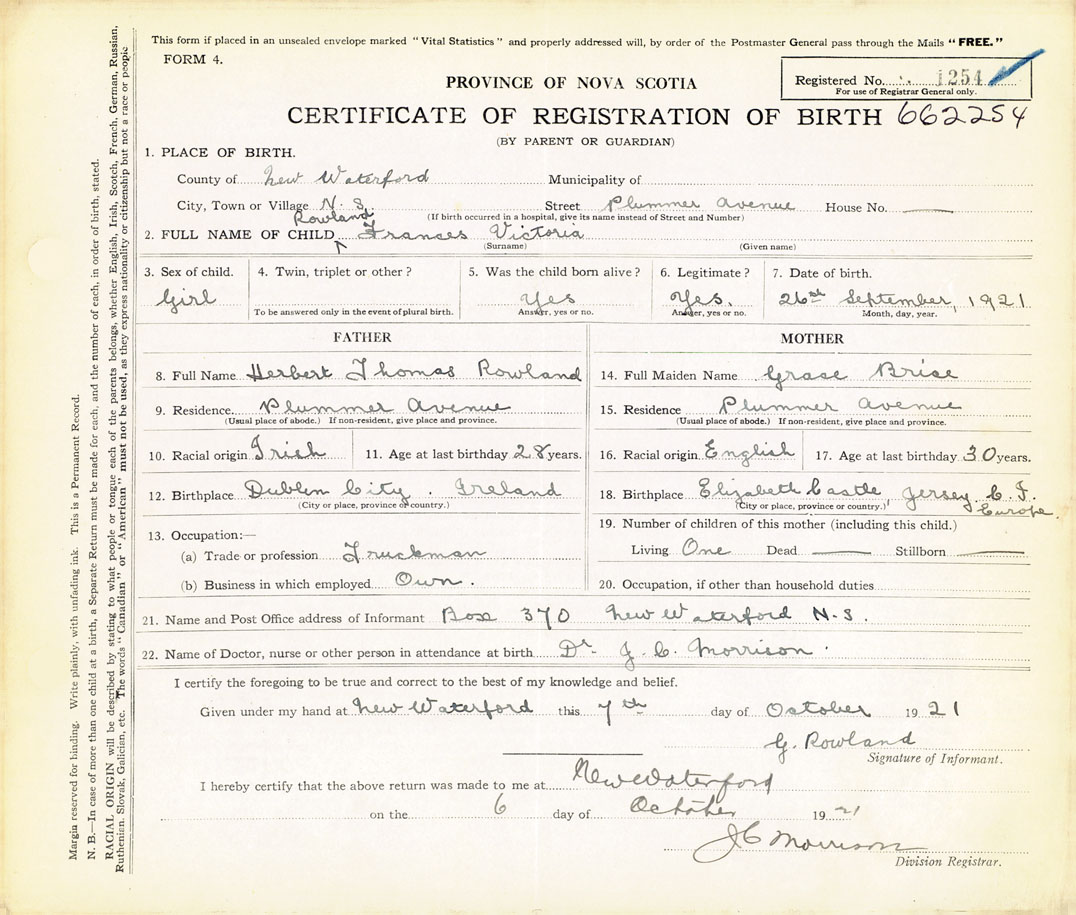 This form if placed in an unsealed envelope marked "Vital Statistics" and properly addressed will, by order of the Postmaster General pass through the Mails "FREE."
FORM 4.
PROVINCE OF NOVA SCOTIA
Registered No. 1254
For use of Registrar General only.
CERTIFICATE OF REGISTRATION OF BIRTH 662254
(BY PARENT OR GUARDIAN)
1. PLACE OF BIRTH.
County of New Waterford Municipality of
City, Town or Village N. S. Street Plummer Avenue House No.
(If birth occurred in a hospital, give its name instead of Street and Number)
Rowland
2. FULL NAME OF CHILD Frances Victoria
(Surname) (Given name)
3. Sex of child. 4. Twin, triplet or other? 5. Was the child born alive? 6. Legitimate? 7. Date of birth.
Girl Yes Yes. 26st September, 1921
To be answered only in the event of plural birth. Answer, yes or no. Answer, yes or no. Month, day, year.
FATHER
8. Full Name Herbert Thomas Rowland
9. Residence Plummer Avenue
(Usual place of abode.) If non-resident, give place and province.
10. Racial origin Irish 11. Age at last birthday 28 years.
12. Birthplace Dublin City. Ireland
(City or place, province or country.)
13. Occupation:—
(a) Trade or profession Truckman
(b) Business in which employed Own.
MOTHER
14. Full Maiden Name Grase Brise
15. Residence Plummer Avenue
(Usual place of abode.) If non-resident, give place and province.
16. Racial origin English 17. Age at last birthday 30 years.
18. Birthplace Elizabeth Castle, Jersey C. I.
(City or place, province or country.) Europe.
19. Number of children of this mother (including this child.)
Living One Dead Stillborn
20. Occupation, if other than household duties
21. Name and Post Office address of Informant Box 370 New Waterford N.S.
22. Name of Doctor, nurse or other person in attendance at birth Dr. J. C. Morrison.
I certify the foregoing to be true and correct to the best of my knowledge and belief.
Given under my hand at New Waterford this 7th day of October 1921
G. Rowland
Signature of Informant.
I hereby certify that the above return was made to me at New Waterford
on the 6 day of October 19 21
J C Morrison
Division Registrar.
Margin reserved for binding. Write plainly, with unfading ink. This is a Permanent Record.
N. B.—In case of more than one child at a birth, a Separate Return must be made for each, and the number of each, in order of birth, stated.
RACIAL ORIGIN will be described by stating to what people or tongue each of the parents belongs, whether English, Irish, Scotch, French, German, Russian,
Ruthenian, Slovak, Galician, etc. The words "Canadian" or "American" must not be used, as they express nationality or citizenship but not a race or people